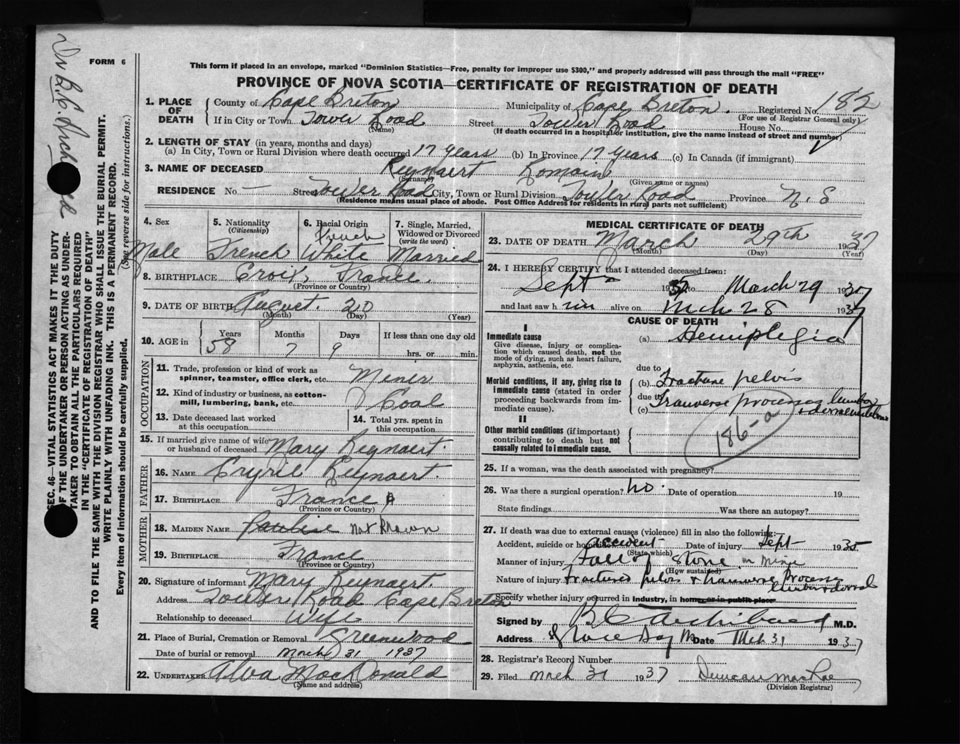 FORM 6
This form if placed in an envelope, marked "Dominion Statistics—Free, penalty for improper use $300," and properly addressed will pass through the mail "FREE"
PROVINCE OF NOVA SCOTIA—CERTIFICATE OF REGISTRATION OF DEATH
1. PLACE OF DEATH County of Cape Breton Municipality of Cape Breton. Registered No. 182
(For use of Registrar General only)
If in City or Town Tower Road (Name) Street Tower Road House No.
(If death occurred in a hospital or institution, give the name instead of street and number)
2. LENGTH OF STAY (in years, months and days)
(a) In City, Town or Rural Division where death occurred 17 years (b) In Province 17 years (c) In Canada (if immigrant)
3. NAME OF DECEASED Reynaert Romain
(Surname) (Given name or names)
RESIDENCE No. — Street Tower Road City, Town or Rural Division Tower Road Province N. S
(Residence means usual place of abode. Post Office Address for residents in rural parts not sufficient)
4. Sex 5. Nationality (Citizenship) 6. Racial Origin 7. Single, Married, Widowed or Divorced (write the word)
French
Male French White Married
8. BIRTHPLACE Croix, France
(Province or Country)
9. DATE OF BIRTH August 20
(Month) (Day) (Year)
10. AGE in Years Months Days If less than one day old
58 7 9 hrs. or min.
OCCUPATION
11. Trade, profession or kind of work as spinner, teamster, office clerk, etc. Miner
12. Kind of industry or business, as cotton-mill, lumbering, bank, etc. Coal
13. Date deceased last worked at this occupation 14. Total yrs. spent in this occupation
15. If married give name of wife or husband of deceased Mary Reynaert.
FATHER
16. NAME Reynaert
17. BIRTHPLACE France
(Province or Country)
MOTHER
18. MAIDEN NAME Pauline Not Known
19. BIRTHPLACE France
(Province or Country)
20. Signature of informant Mary Reynaert
Address Tower Road Cape Breton
Relationship to deceased Wife
21. Place of Burial, Cremation or Removal Greenwood
Date of burial or removal March 31 1937
22. UNDERTAKER Alva MacDonald
(Name and address)
MEDICAL CERTIFICATE OF DEATH
23. DATE OF DEATH March 29th 1937
(Month) (Day) (Year)
24. I HEREBY CERTIFY that I attended deceased from:
Sept 193 to March 29 1937
and last saw him alive on Mch 28 1937
CAUSE OF DEATH
I
Immediate cause
Give disease, injury or complication which caused death, not the mode of dying, such as heart failure, asphyxia, asthenia, etc.
(a) Hemiplegia
due to
Morbid conditions, if any, giving rise to immediate cause (stated in order proceeding backwards from immediate cause).
(b) Fracture pelvis
due to
(c) Tranverse processes lumbar & dorsal
186-a
II
Other morbid conditions (if important) contributing to death but not causally related to immediate cause.
25. If a woman, was the death associated with pregnancy?
26. Was there a surgical operation? no. Date of operation 19
State findings Was there an autopsy?
27. If death was due to external causes (violence) fill in also the following:
Accident, suicide or homicide accident Date of injury Sept 1935
(State which)
Manner of injury Fall of stone in mine
(How sustained)
Nature of injury fractured pelvis & tranverse process lumbar & dorsal
Specify whether injury occurred in industry, in home, or in public place
Signed by B C Archibald M.D.
Address Glace Bay Date Mch 31 1937
28. Registrar's Record Number
29. Filed Mch 31 1937 Duncan MacRae
(Division Registrar)
SEC. 46—VITAL STATISTICS ACT MAKES IT THE DUTY
OF THE UNDERTAKER OR PERSON ACTING AS UNDER-
TAKER TO OBTAIN ALL THE PARTICULARS REQUIRED
IN THE "CERTIFICATE OF REGISTRATION OF DEATH"
AND TO FILE THE SAME WITH THE DIVISION REGISTRAR WHO SHALL ISSUE THE BURIAL PERMIT.
WRITE PLAINLY WITH UNFADING INK. THIS IS A PERMANENT RECORD.
Every item of information should be carefully supplied. (See reverse side for instructions.)